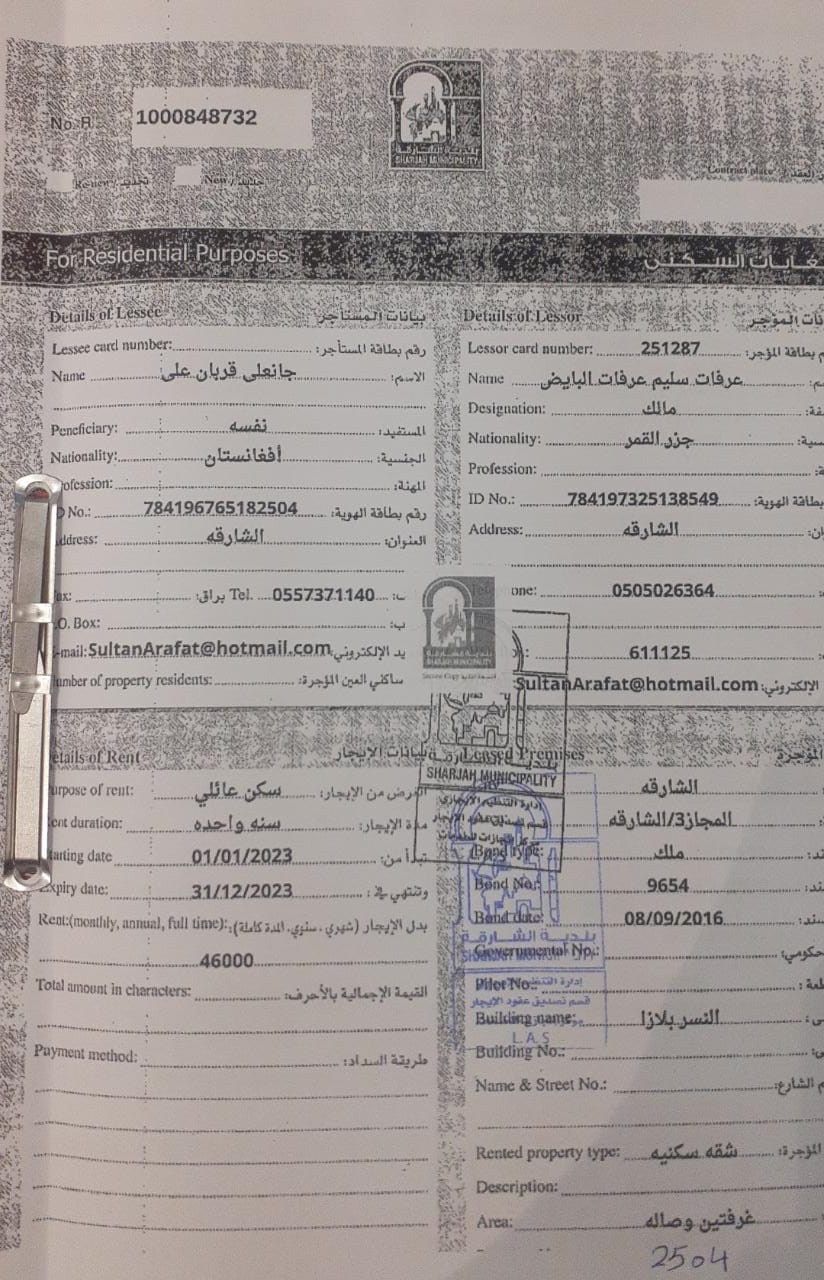 No. R
1000848732
بلدية الشارقة
SHARJAH MUNICIPALITY
Renew / تجديد
New / جديد
Contract place
For Residential Purposes
لغايات السكنى
Details of Lessee
بيانات المستأجر
Lessee card number:
رقم بطاقة المستأجر:
Name جانعلى قربان على الاسم:
Peneficiary: نفسه المستفيد:
Nationality: أفغانستان الجنسية:
ofession: المهنة:
D No.: 784196765182504 رقم بطاقة الهوية:
ddress: الشارقه العنوان:
ax: براق: Tel. 0557371140
.O. Box:
-mail: SultanArafat@hotmail.com يد الإلكتروني:
umber of property residents: ساكني العين المؤجرة:
Details of Lessor
نات المؤجر
Lessor card number: 251287 م بطاقة المؤجر:
Name عرفات سليم عرفات البايض
Designation: مالك
Nationality: جزر القمر
Profession:
ID No.: 784197325138549 بطاقة الهوية:
Address: الشارقه
one: 0505026364
611125
SultanArafat@hotmail.com الإلكتروني:
SHARJAH MUNICIPALITY
etails of Rent
بيانات الايجار
urpose of rent: سكن عائلي الغرض من الإيجار:
ent duration: سنه واحده مدة الإيجار:
tarting date 01/01/2023 تبدأ من:
xpiry date: 31/12/2023 وتنتهي في:
Rent:(monthly, annual, full time): بدل الإيجار (شهري، سنوي، المدة كاملة):
46000
Total amount in characters: القيمة الإجمالية بالأحرف:
Payment method: طريقة السداد:
Leased Premises
المؤجرة
الشارقه
المجاز3/الشارقه
Bond type: ملك
Bond No: 9654
Bond date: 08/09/2016
Governmental No.: حكومي:
Pilot No.:
Building name: النسر بلازا
Building No.:
Name & Street No.: م الشارع:
Rented property type: شقه سكنيه المؤجرة:
Description:
Area: غرفتين وصاله
2504
SHARJAH MUNICIPALITY
إدارة التنظيم الإيجاري
بلدية الشارقة
قسم تصديق عقود الإيجار
L.A.S